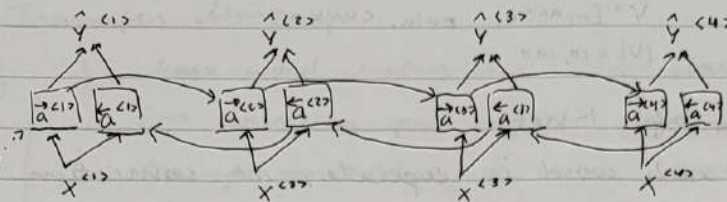 ŷ<1> ŷ<2> ŷ<3> ŷ<4>
→a<1> ←a<1> →a<2> ←a<2> →a<3> ←a<3> →a<4> ←a<4>
x<1> x<2> x<3> x<4>